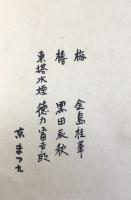 梅　金島桂華
椿　黒田辰秋
東塔水煙　徳力富吉郎
京　まつ九